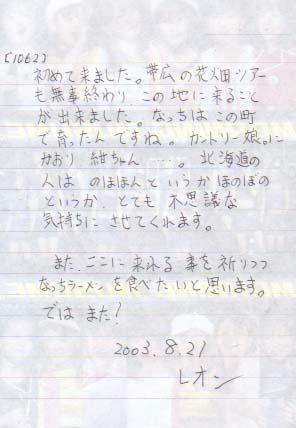 [1062]
初めて来ました。帯広の花畑ツアー
も無事終わり、この地に来ること
が出来ました。なっちはこの町
で育ったんですね。カントリー娘。に
みおり 紺ちゃん …。北海道の
人は のほほんと いうか ほのぼの
というか、とても 不思議な
気持ちに させてくれます。
また、ここに 来れる 事を 祈りつつ
なっちラーメン を食べたいと思います。
では また!
2003.8.21
レオン